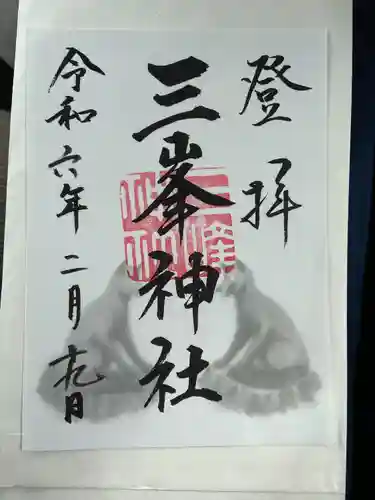 登拝
三峯神社
令和六年二月十九日